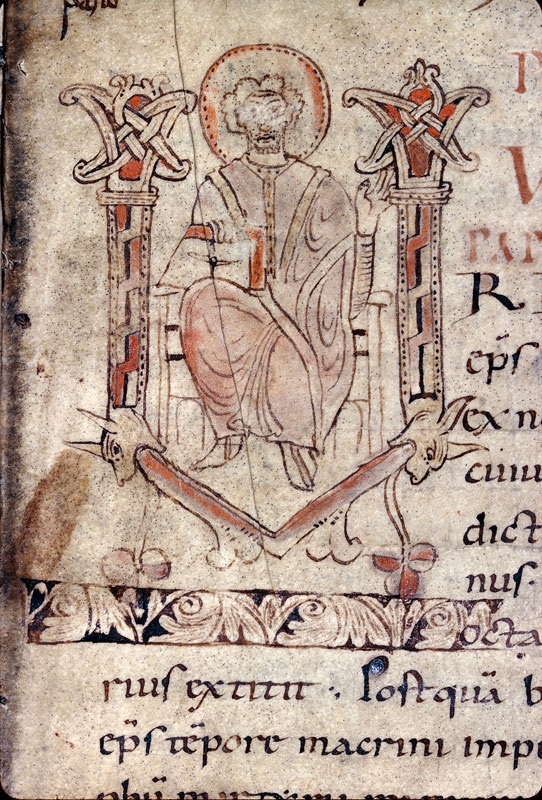 passio
P
V
PAP
R
ep̄s
ex n
cuiu
dict
nus·
octa
rius extitit ·, Postquā b
ep̄s tēpore macrini impe